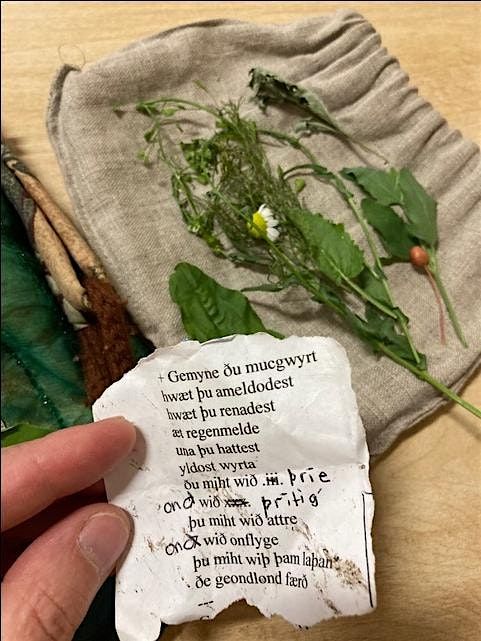 + Gemyne ðu mucgwyrt
hwæt þu ameldodest
hwæt þu renadest
æt regenmelde
una þu hattest
yldost wyrta
ðu miht wið .iii. þrie
ond wið xxx. þritig
þu miht wið attre
ond wið onflyge
þu miht wiþ þam laþan
ðe geondlond færð